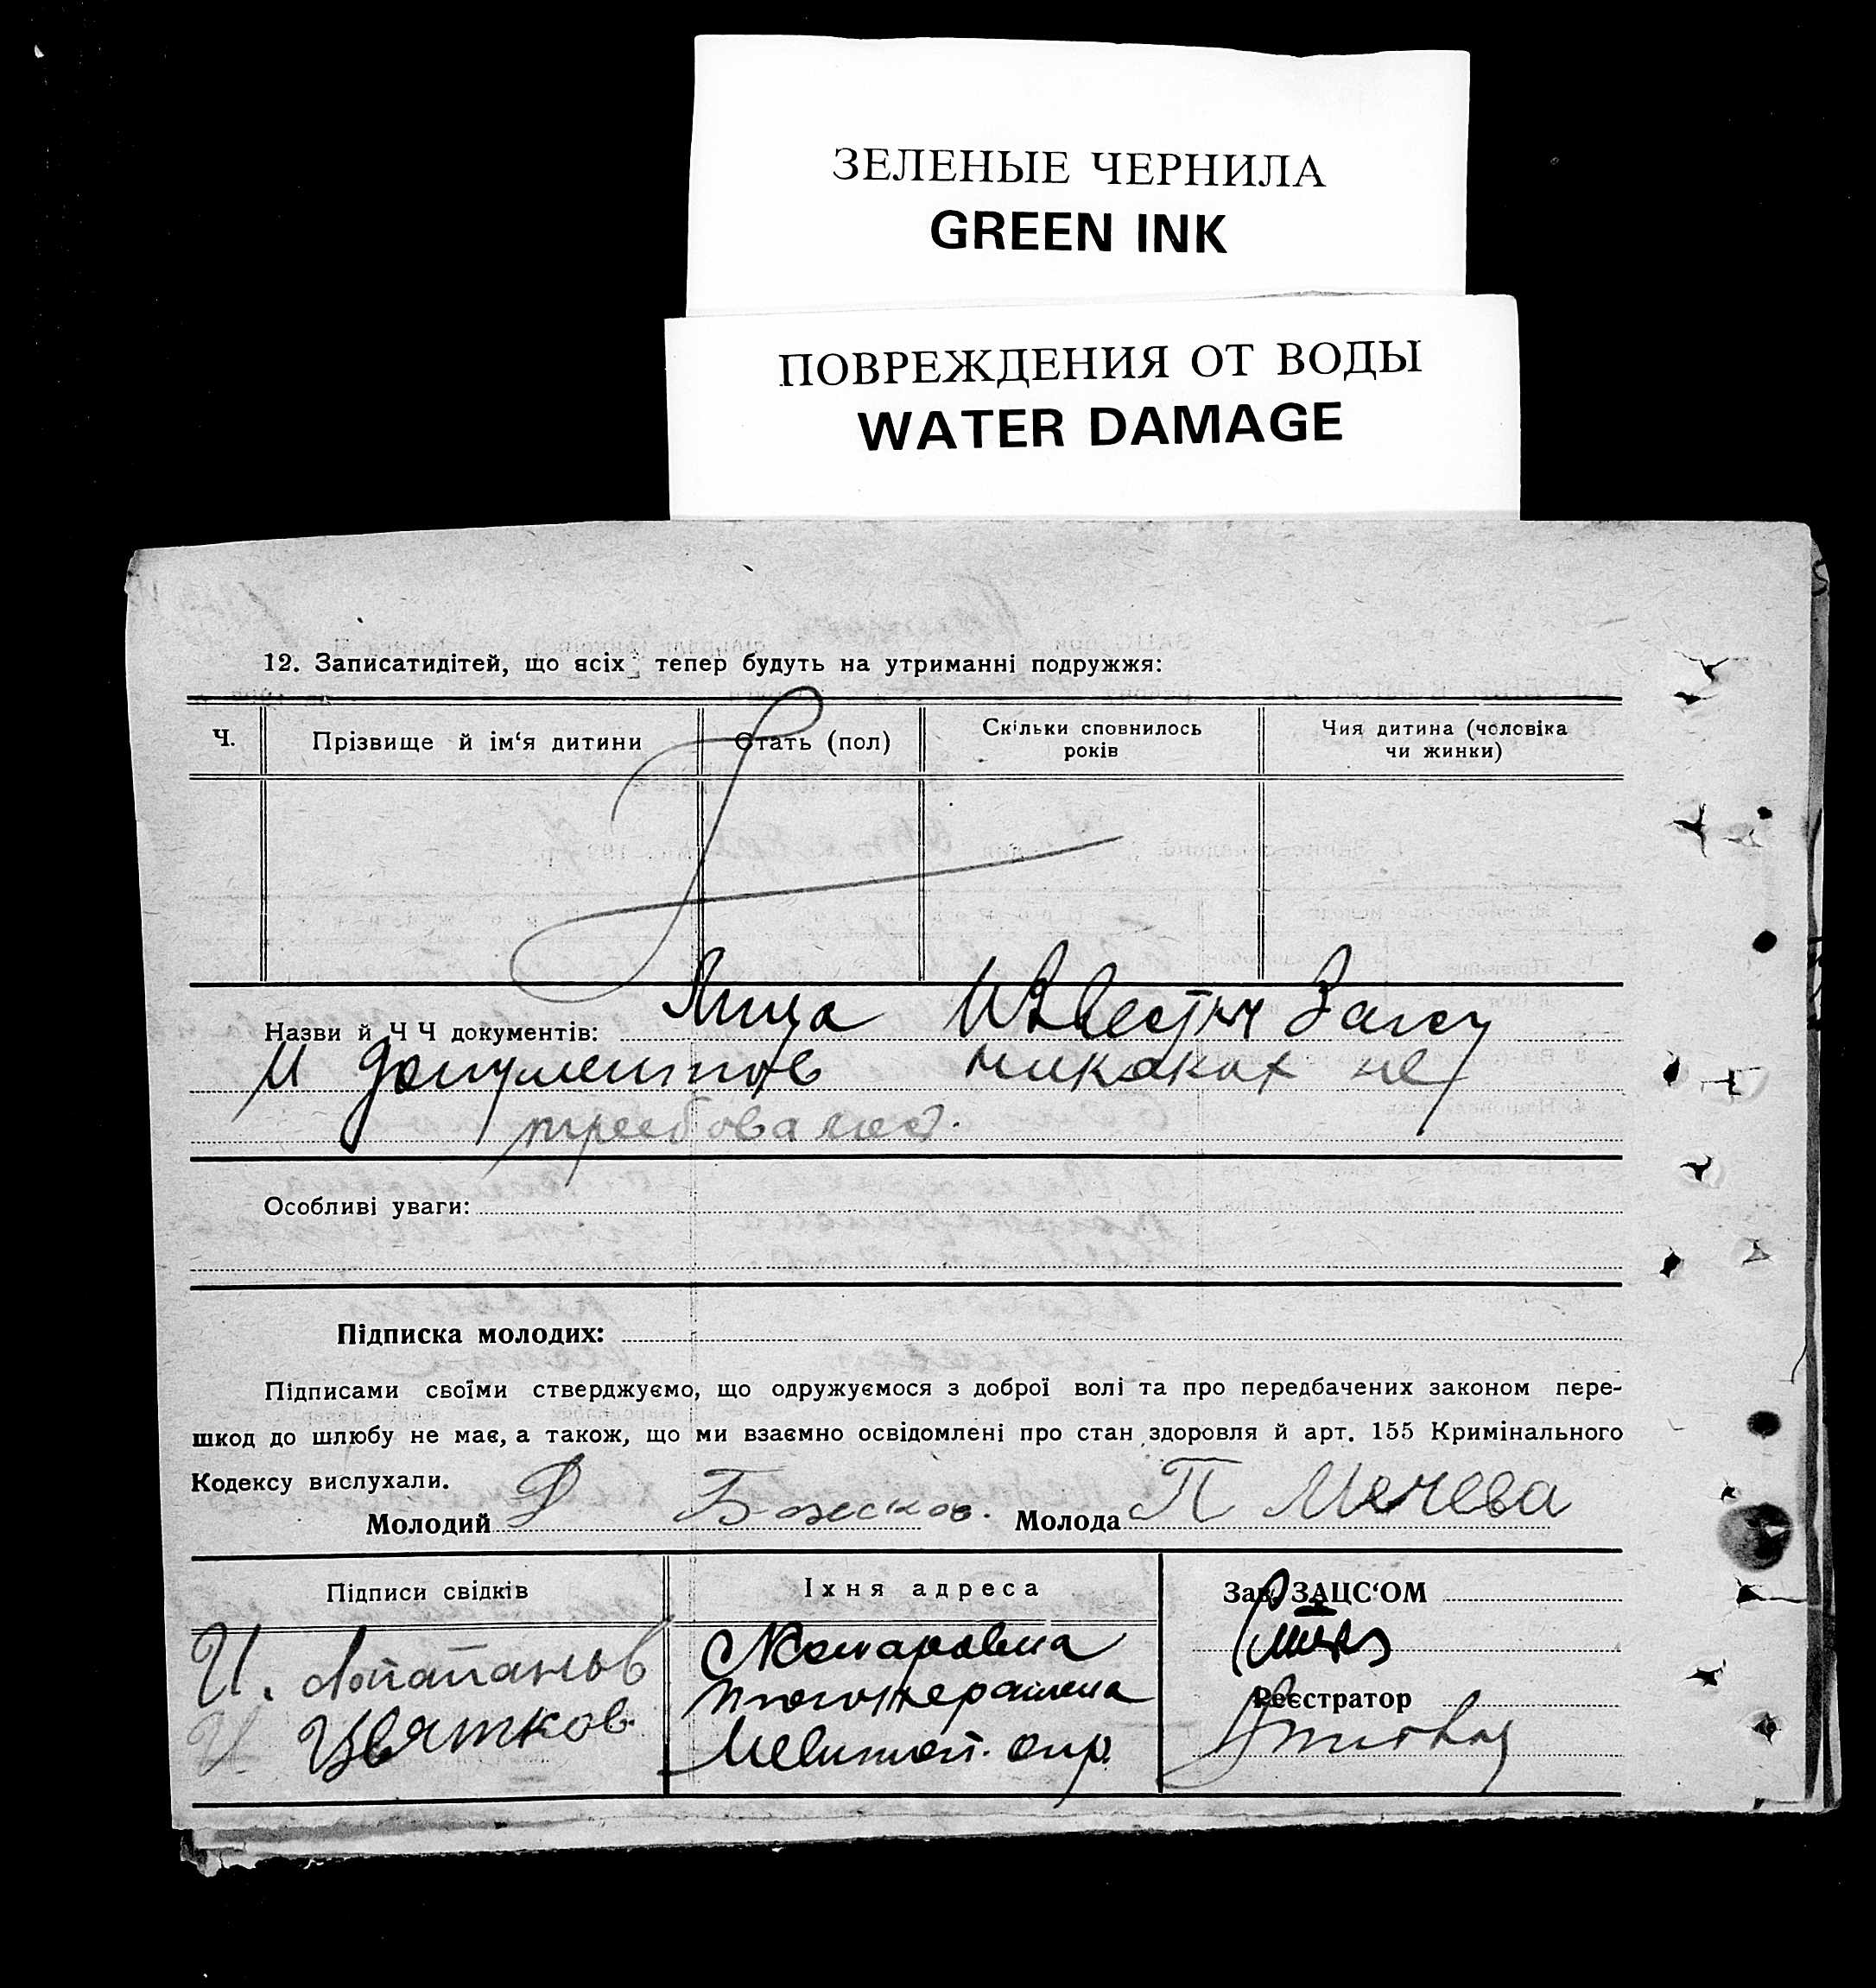 ЗЕЛЕНЫЕ ЧЕРНИЛА
GREEN INK
ПОВРЕЖДЕНИЯ ОТ ВОДЫ
WATER DAMAGE
12. Записатидітей, що всіх тепер будуть на утриманні подружжя:
Ч. Прізвище й ім‘я дитини Стать (пол) Скільки сповнилось років Чия дитина (чоловіка чи жинки)
Назви й Ч Ч документів: Лица Известны Загсу
и документов никаких не
требовалось.
Особливі уваги:
Підписка молодих:
Підписами своїми стверджуємо, що одружуємося з доброї волі та про передбачених законом пере-
шкод до шлюбу не має, а також, що ми взаємно освідомлені про стан здоровля й арт. 155 Кримінального
Кодексу вислухали.
Молодий Д Божсков. Молода П Мечева
Підписи свідків Їхня адреса Зав. ЗАЦС‘ОМ
И.
И Цвятков
Реєстратор